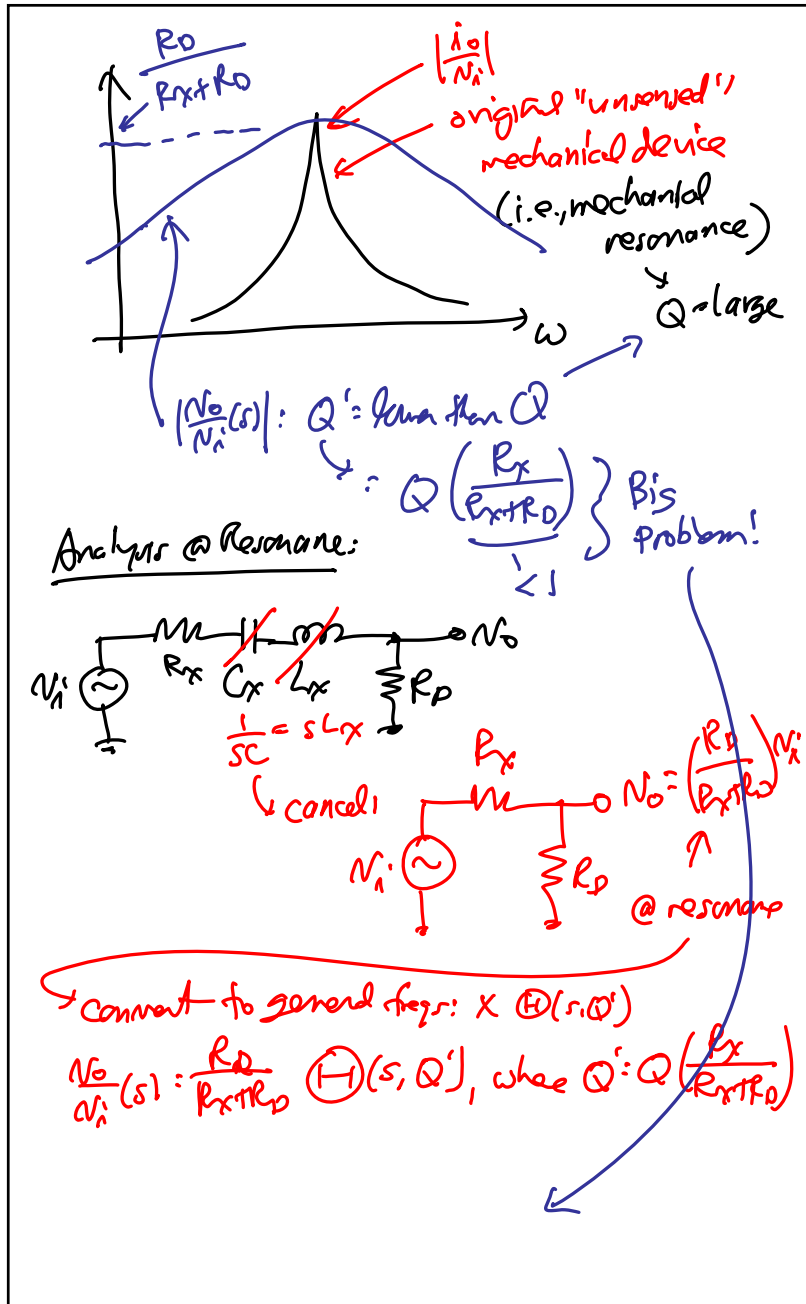 R_D / (R_x + R_D)
|i_o / v_i|
original "unsensed"
mechanical device
(i.e., mechanical
resonance)
Q = large
ω
|v_o/v_i (s)| : Q' = lower than Q
= Q (R_x / (R_x + R_D)) } Big
Problem!
< 1
Analysis @ Resonance:
v_i
R_x
C_x
L_x
R_D
v_o
1/sC = sL_x
↳ cancel!
R_x
v_i
R_D
v_o = (R_D / (R_x + R_D)) v_i
@ resonance
↳ convert to general freqs: × Θ(s, Q')
v_o/v_i (s) = R_D / (R_x + R_D) Θ(s, Q'), where Q' = Q (R_x / (R_x + R_D))